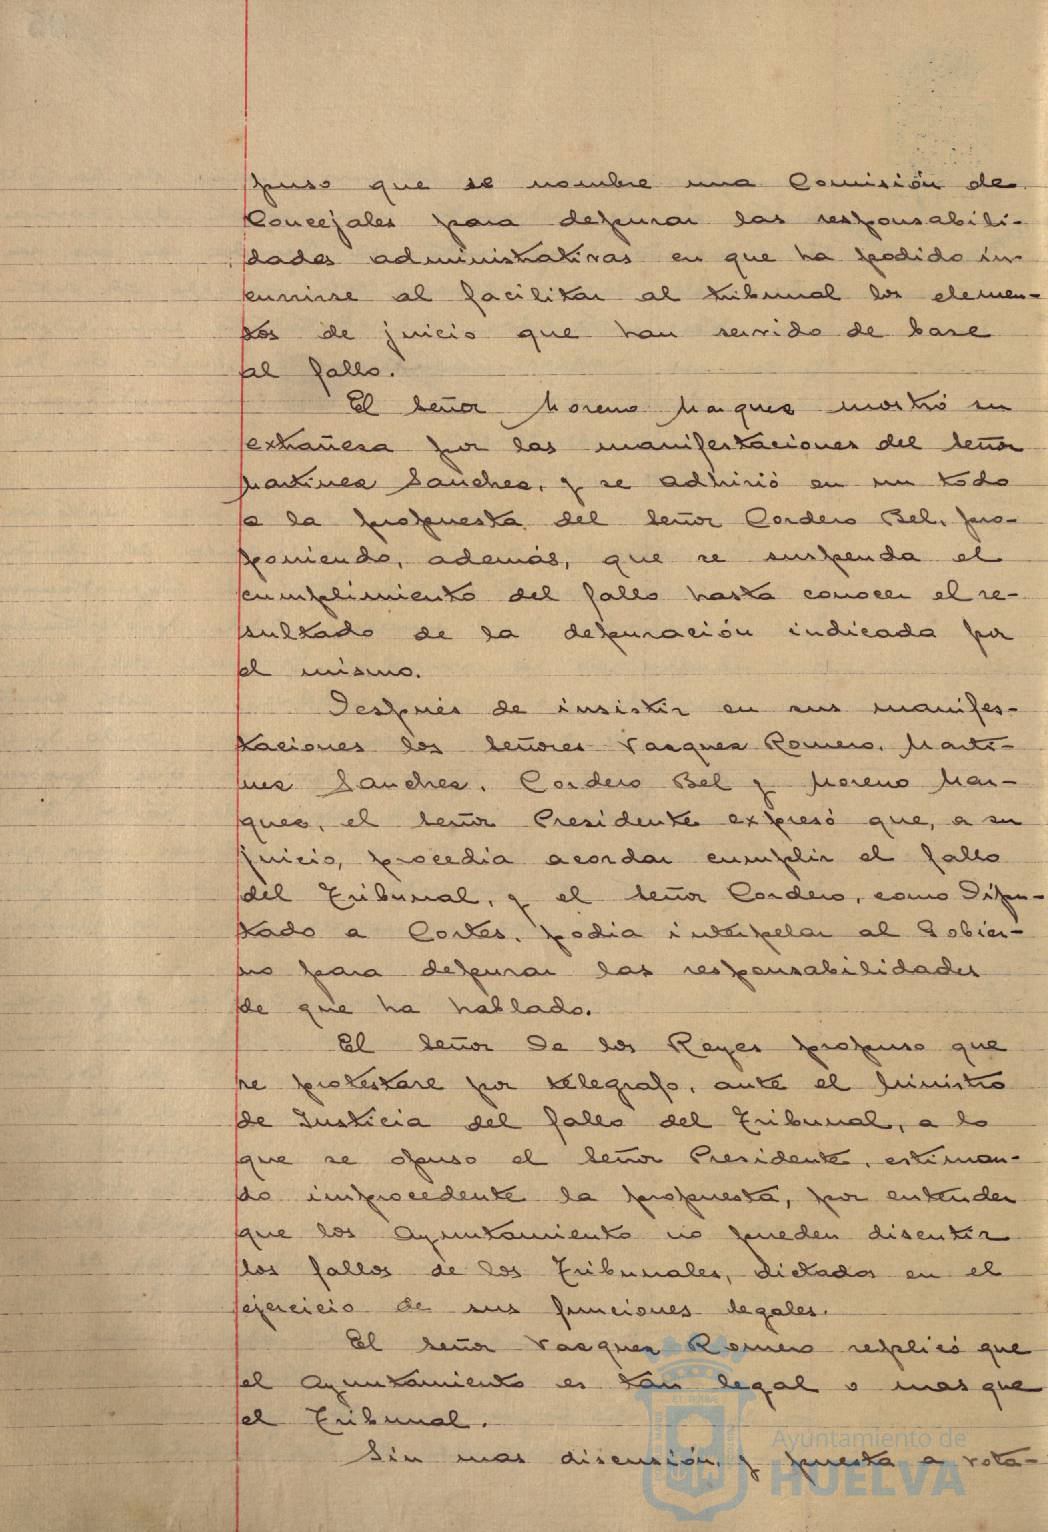 puso que se nombre una Comisión de
Concejales para depurar las responsabili-
dades administrativas en que ha podido in-
currirse al facilitar al tribunal los elemen-
tos de juicio que han servido de base
al fallo.
El Señor Moreno Marquez mostró su
extrañesa por las manifestaciones del Señor
Martinez Sanchez, y se adhirió en un todo
a la propuesta del Señor Cordero Bel, pro-
poniendo, además, que se suspenda el
cumplimiento del fallo hasta conocer el re-
sultado de la depuración indicada por
el mismo.
Después de insistir en sus manifes-
taciones los Señores Vazquez Romero, Marti-
nez Sanchez, Cordero Bel y Moreno Mar-
quez, el Señor Presidente expresó que, a su
juicio, procedia acordar cumplir el fallo
del Tribunal, y el Señor Cordero, como Dipu-
tado a Cortes, podia interpelar al Gobier-
no para depurar las responsabilidades
de que ha hablado.
El Señor De los Reyes propuso que
se protestare por telegrafo, ante el Ministro
de Justicia del fallo del Tribunal, a lo
que se opuso el Señor Presidente, estiman-
do improcedente la propuesta, por entender
que los Ayuntamiento no pueden discutir
los fallos de los Tribunales, dictados en el
ejercicio de sus funciones legales.
El Señor Vazquez Romero replicó que
el Ayuntamiento es tan legal o mas que
el Tribunal.
Sin mas discusión, y puesta a vota-
Ayuntamiento de
HUELVA